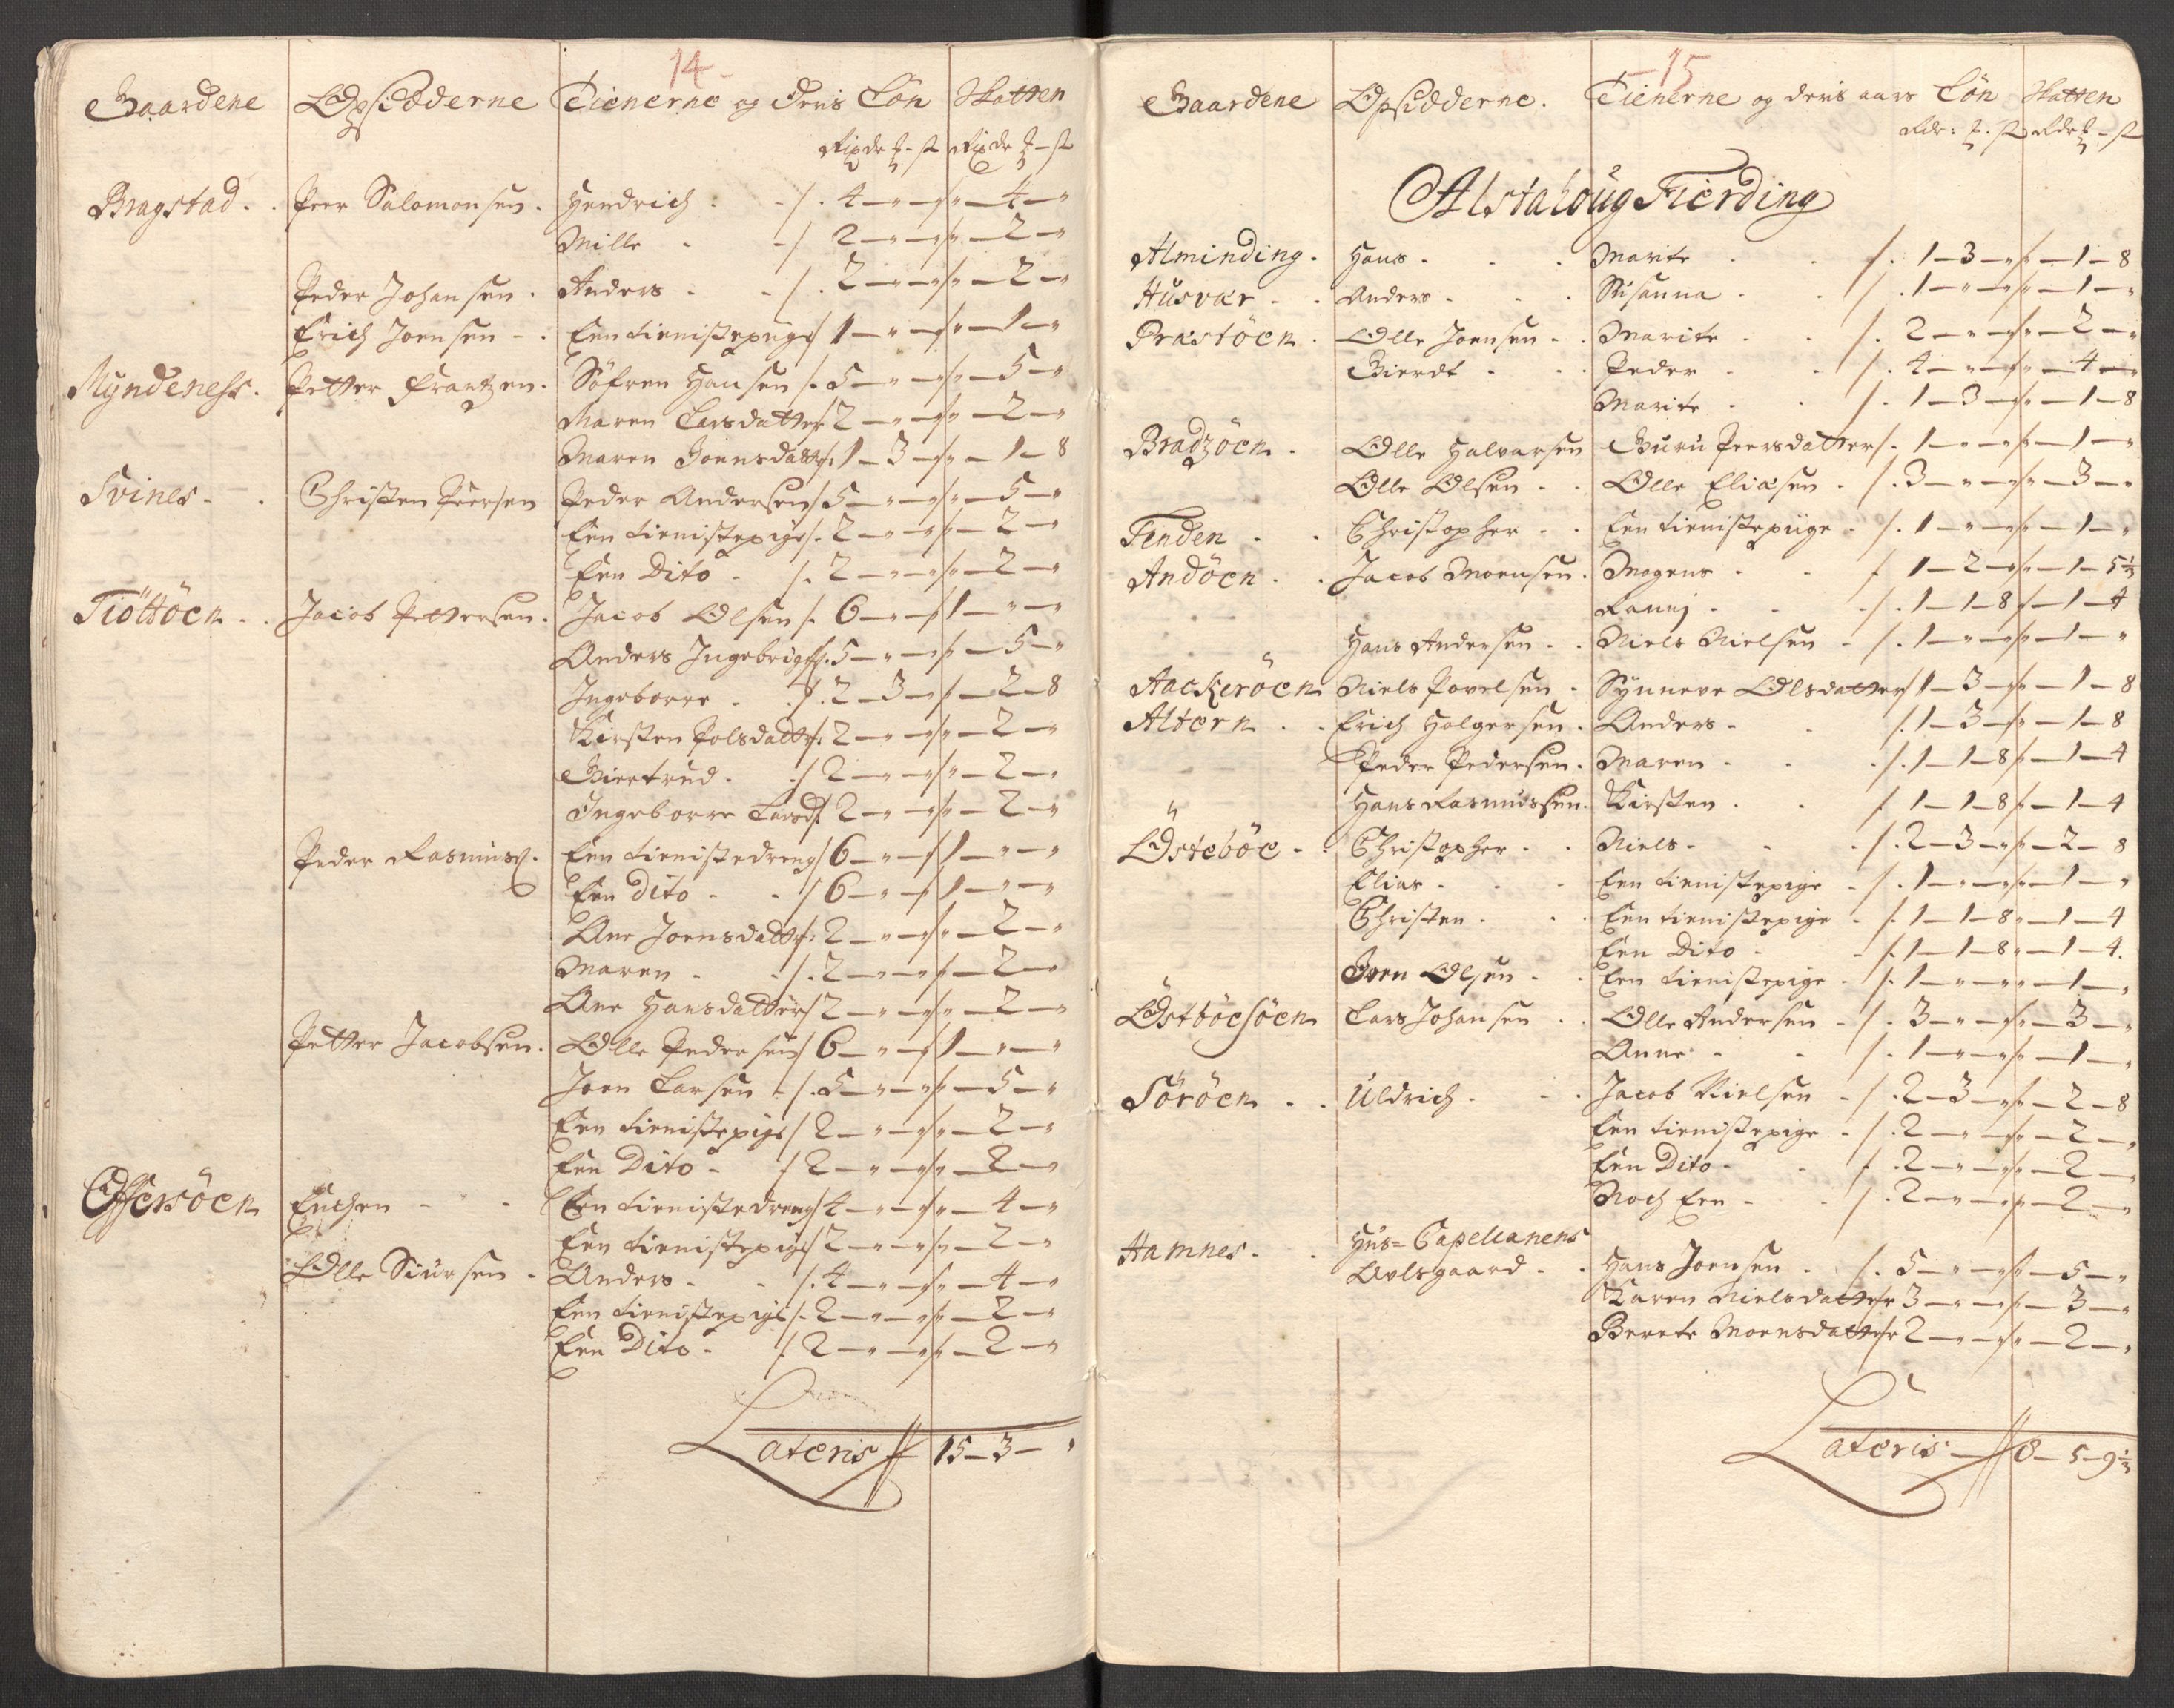 14
Gaardene Opsidderne Tienerne og deris Løn Skatten
Rixdr ß Rixdr ß
Bragstad. Peer Salamonsen. Hendrich 4 — 4
Mille 2 — 2
Peder Johansen. Anders 2 — 2
Erich Joensen Een tienistepige 1 — 1
Myndeness. Petter Frantzen. Söfren Hansen 5 — 5
Maren Larsdatter 2 — 2
Maren Joensdatter 1-3 — 1-8
Svines Christen Peersen Peder Andersen 5 — 5
Een tienistepige 2 — 2
Een Dito 2 — 2
Tiöttöen Jacob Pettersen. Jacob Olsen 6 — 1
Anders Ingebrigts. 5 — 5
Ingeborre 2-3 — 2-8
Kirsten Polsdatter 2 — 2
Giertrud 2 — 2
Ingeborre Larsd. 2 — 2
Peder Rasmus. Een tienistedreng 6 — 1
Een Dito 6 — 1
Ane Joensdatter 2 — 2
Maren 2 — 2
Ane Hansdatter 2 — 2
Petter Jacobsen. Olle Pedersen 6 — 1
Joen Larsen 5 — 5
Een tienistepige 2 — 2
Een Dito 2 — 2
Offersöen Enchen Een tienistedreng 4 — 4
Een tienistepige 2 — 2
Olle Siursen Anders 4 — 4
Een tienistepige 2 — 2
Een Dito 2 — 2
Lateris 15-3-
15
Gaardene Opsidderne. Tienerne og deris aars Løn Skatten
Rdr: ß Rdr ß
Alstahoug Fierding
Alminding. Hans Marite 1-3 — 1-8
Husvær Anders Susanna 1 — 1
Præstöen. Olle Joensen Marite 2 — 2
Gierdt Peder 4 — 4
Marite 1-3 — 1-8
Bradzöen. Olle Halvarsen Guru Peersdatter 1 — 1
Olle Olsen Olle Eliæsen 3 — 3
Tenden Christopher Een tienistepiige 1 — 1
Andöen Jacob Moensen. Mogens 1-2 — 1-5 1/3
Rannj 1-1-8 — 1-4
Hans Andersen Niels Nielsen 1 — 1
Aackeröen Niels Povelsen Synneve Olsdatter 1-3 — 1-8
Altern Erich Holgersen. Anders 1-3 — 1-8
Peder Pedersen. Maren 1-1-8 — 1-4
Hans Rasmussen. Kirsten 1-1-8 — 1-4
Östeböe Christopher Niels 2-3 — 2-8
Elias Een tienistepige 1 — 1
Christen Een tienistepige 1-1-8 — 1-4
Een Dito 1-1-8 — 1-4.
Iven Olsen Een tienistepige 1 — 1
Östböesöen Lars Johansen Olle Andersen 3 — 3
Anne 1 — 1
Söröen Uldrich Jacob Nielsen 2-3 — 2-8
Een tienistepige 2 — 2
Een Dito 2 — 2
Noch Een 2 — 2
Hamnes Hus=Capellanens
Avlsgaard Hans Joensen 5 — 5
Karen Nielsdatter 3 — 3
Berete Moensdatter 2 — 2
Lateris 8-5-9 1/3